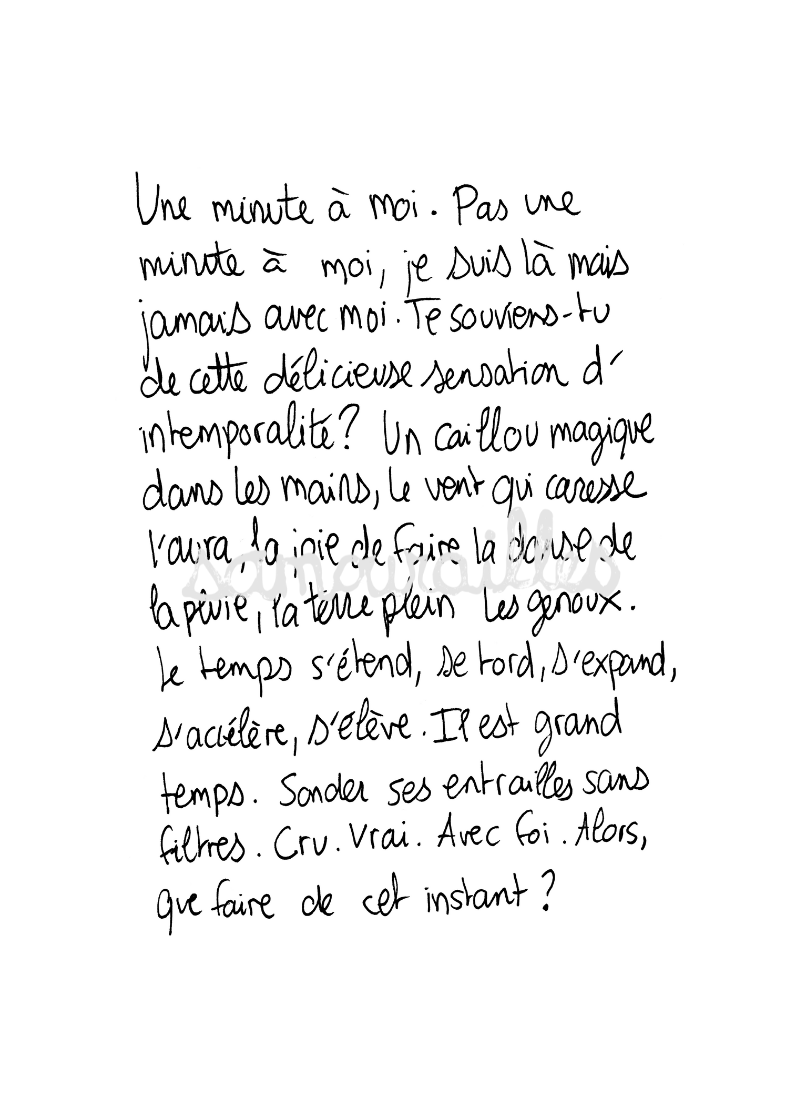 Une minute à moi. Pas une
minute à moi, je suis là mais
jamais avec moi. Te souviens-tu
de cette délicieuse sensation d'
intemporalité? Un caillou magique
dans les mains, le vent qui caresse
l'aura, la joie de faire la danse de
la pluie, la terre plein les genoux.
le temps s'étend, se tord, s'expand,
s'accélère, s'élève. Il est grand
temps. Sonder ses entrailles sans
filtres. Cru. Vrai. Avec foi. Alors,
que faire de cet instant?